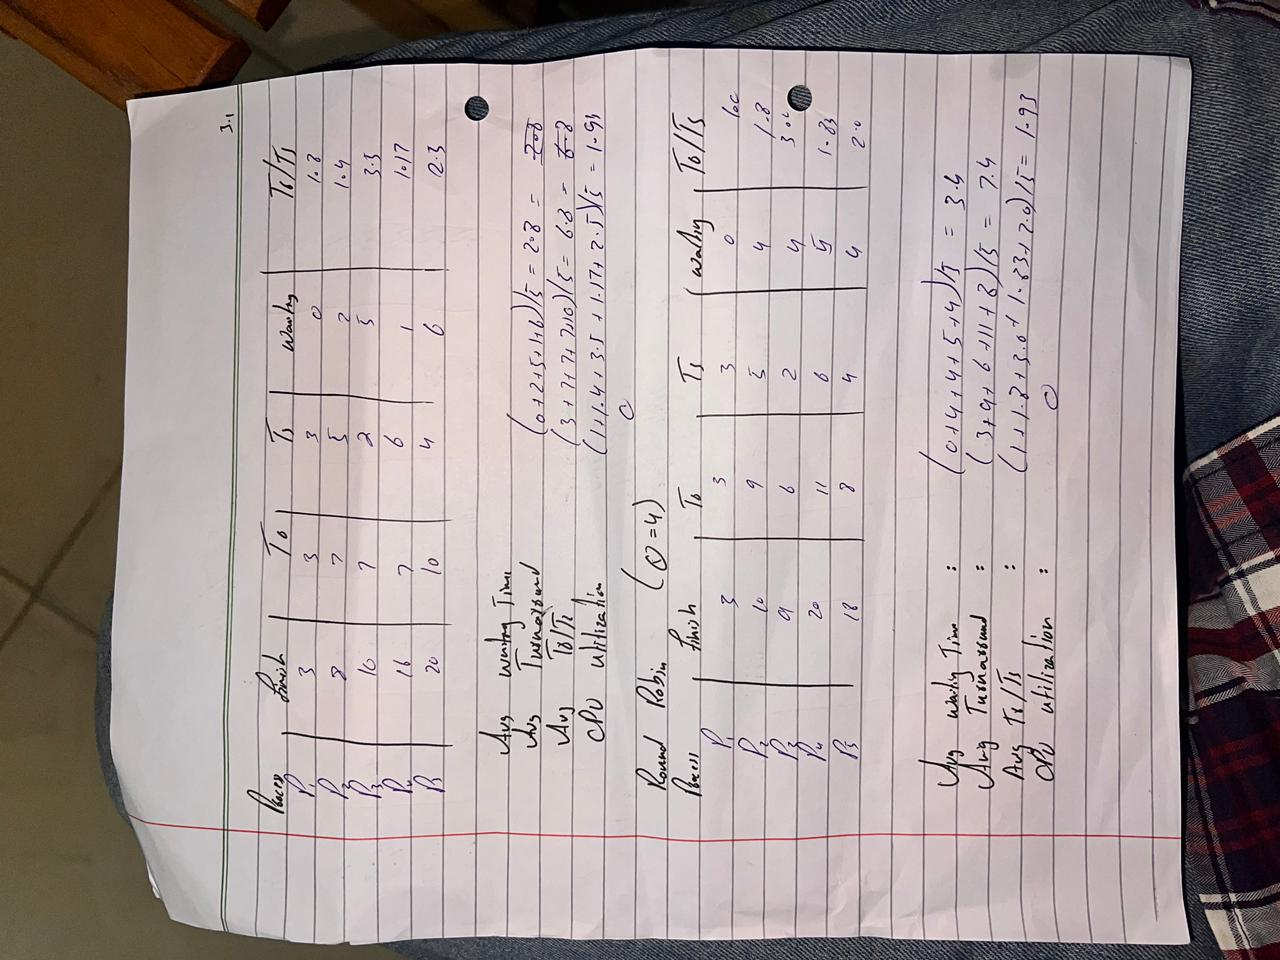 3.1
Process Finish T0 Ts Waiting T0/Ts
P1 3 3 3 0 1.8
P2 8 7 5 2 1.4
P3 10 7 2 5 3.5
P4 16 7 6 1 1.17
P5 20 10 4 6 2.3
Avg Waiting Time (0+2+5+1+6)/5 = 2.8 =
Avg Turnaround (3+7+7+7+10)/5 = 6.8 =
Avg T0/Ts (1+1.4+3.5+1.17+2.5)/5 = 1.93
CPU utilization 0
Round Robin (Q=4)
Process Finish T0 Ts Waiting T0/Ts
P1 3 3 3 0
P2 10 9 5 4 1.8
P3 9 6 2 4 3.0
P4 20 11 6 5 1.83
P5 18 8 4 4 2.0
Avg Waiting Time : (0+4+4+5+4)/5 = 3.4
Avg Turnaround : (3+9+6+11+8)/5 = 7.4
Avg T0/Ts : (1+1.8+3.0+1.83+2.0)/5 = 1.93
CPU utilization : 0